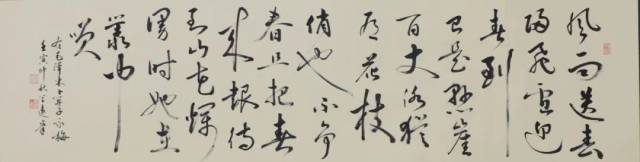 风雨送春
归飞雪迎
春到
已是悬崖
百丈冰犹
有花枝
俏也不争
春只把春
来报待
到山花烂
漫时她在
丛中
笑
右毛泽东卜算子咏梅
壬寅仲秋